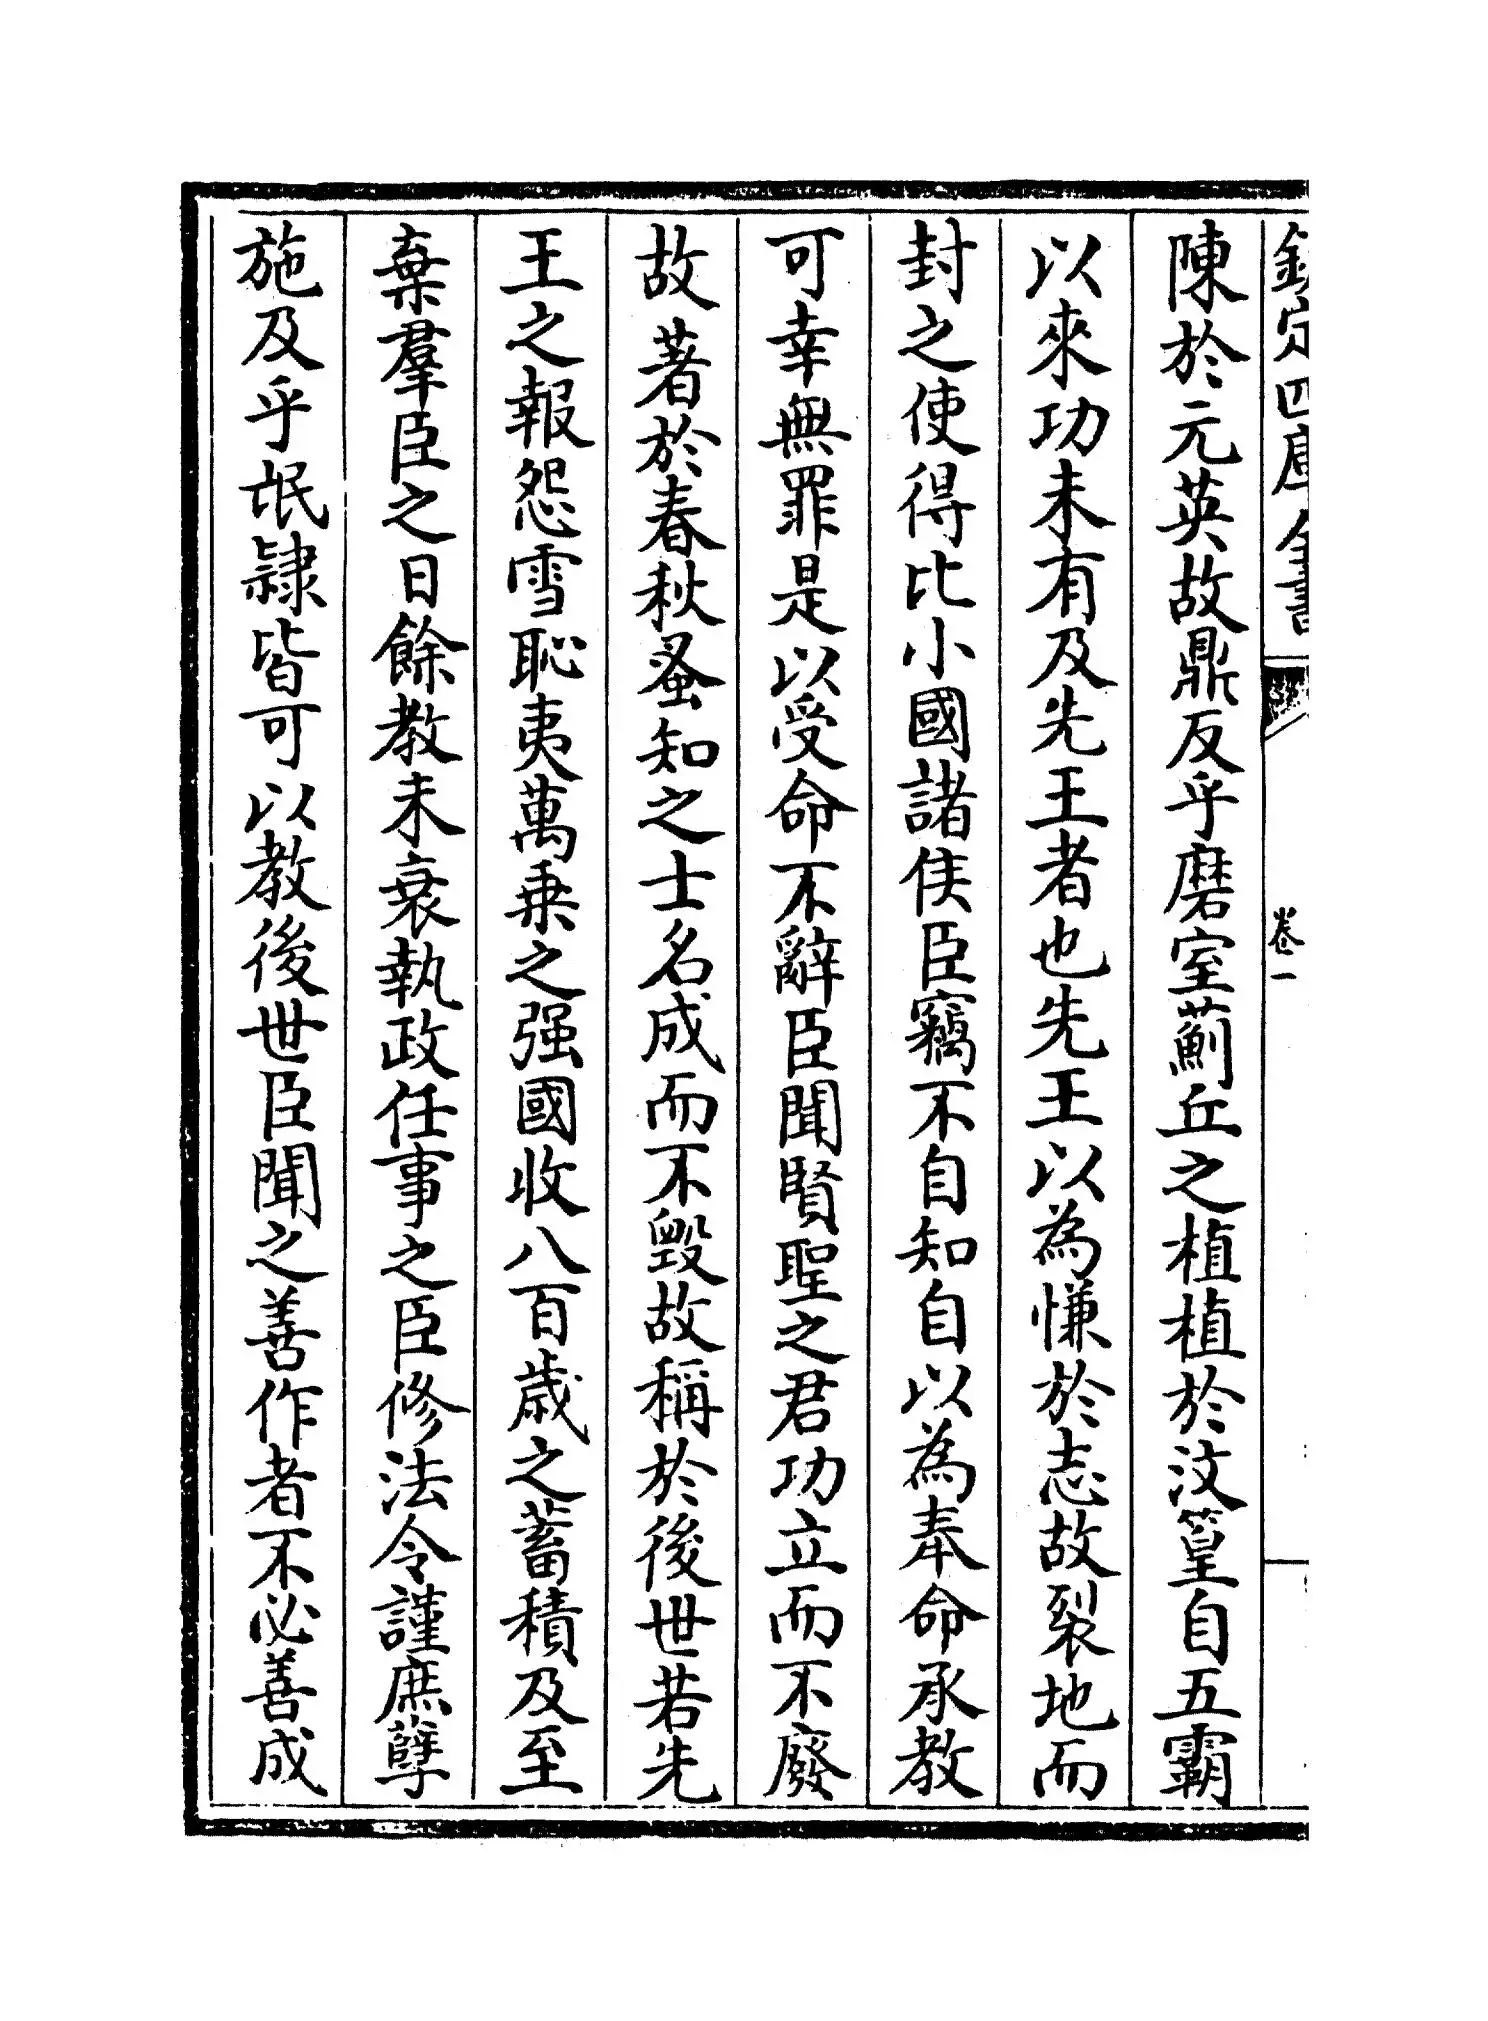 欽定四庫全書
卷一
陳於元英故鼎反乎磨室薊丘之植植於汶篁自五霸
以來功未有及先王者也先王以為慊於志故裂地而
封之使得比小國諸侯臣竊不自知自以為奉命承教
可幸無罪是以受命不辭臣聞賢聖之君功立而不廢
故著於春秋蚤知之士名成而不毀故稱於後世若先
王之報怨雪恥夷萬乗之强國收八百歳之蓄積及至
棄羣臣之日餘教未衰執政任事之臣修法令謹庶孽
施及乎氓隷皆可以教後世臣聞之善作者不必善成